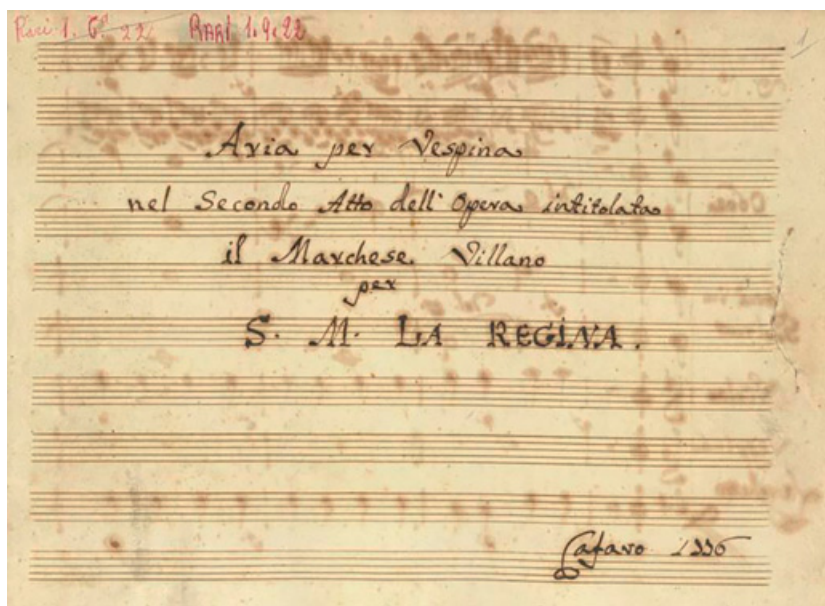 Rari 1. 6. 22 RARI 1.9.22
1
Aria per Vespina
nel Secondo Atto dell' Opera intitolata
il Marchese Villano
per
S. M. LA REGINA.
Cafaro